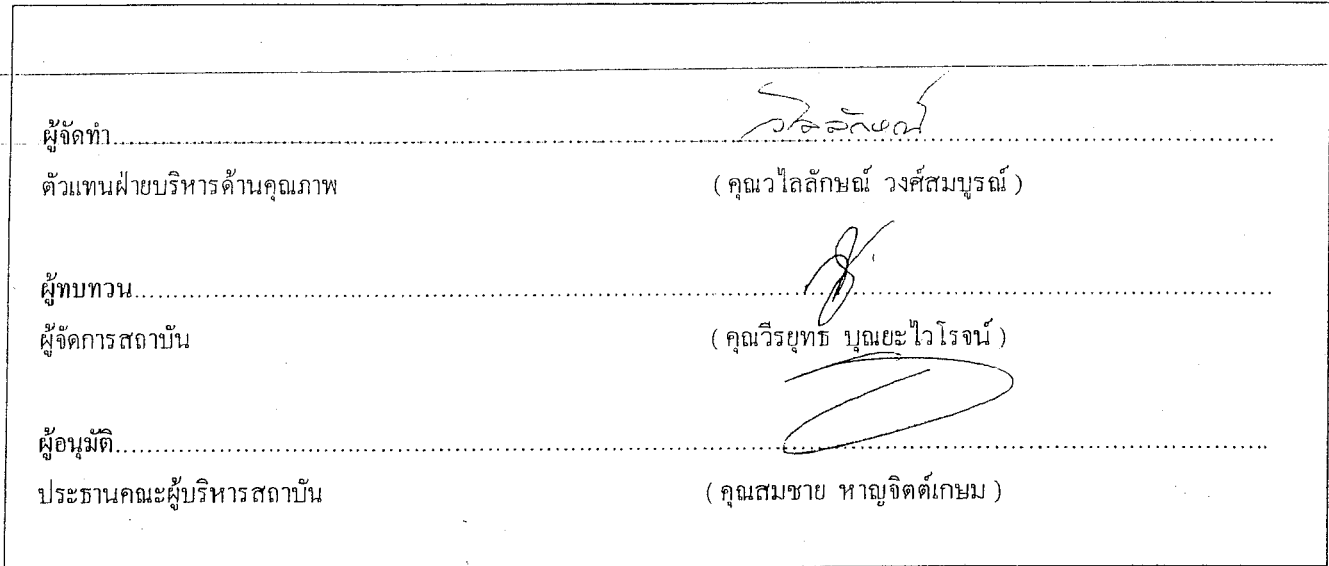 วิไลลักษณ์
ผู้จัดทำ..........
ตัวแทนฝ่ายบริหารด้านคุณภาพ ( คุณวิไลลักษณ์ วงศ์สมบูรณ์ )
ผู้ทบทวน..........
ผู้จัดการสถาบัน ( คุณวีรยุทธ บุณยะไวโรจน์ )
ผู้อนุมัติ..........
ประธานคณะผู้บริหารสถาบัน ( คุณสมชาย หาญจิตต์เกษม )